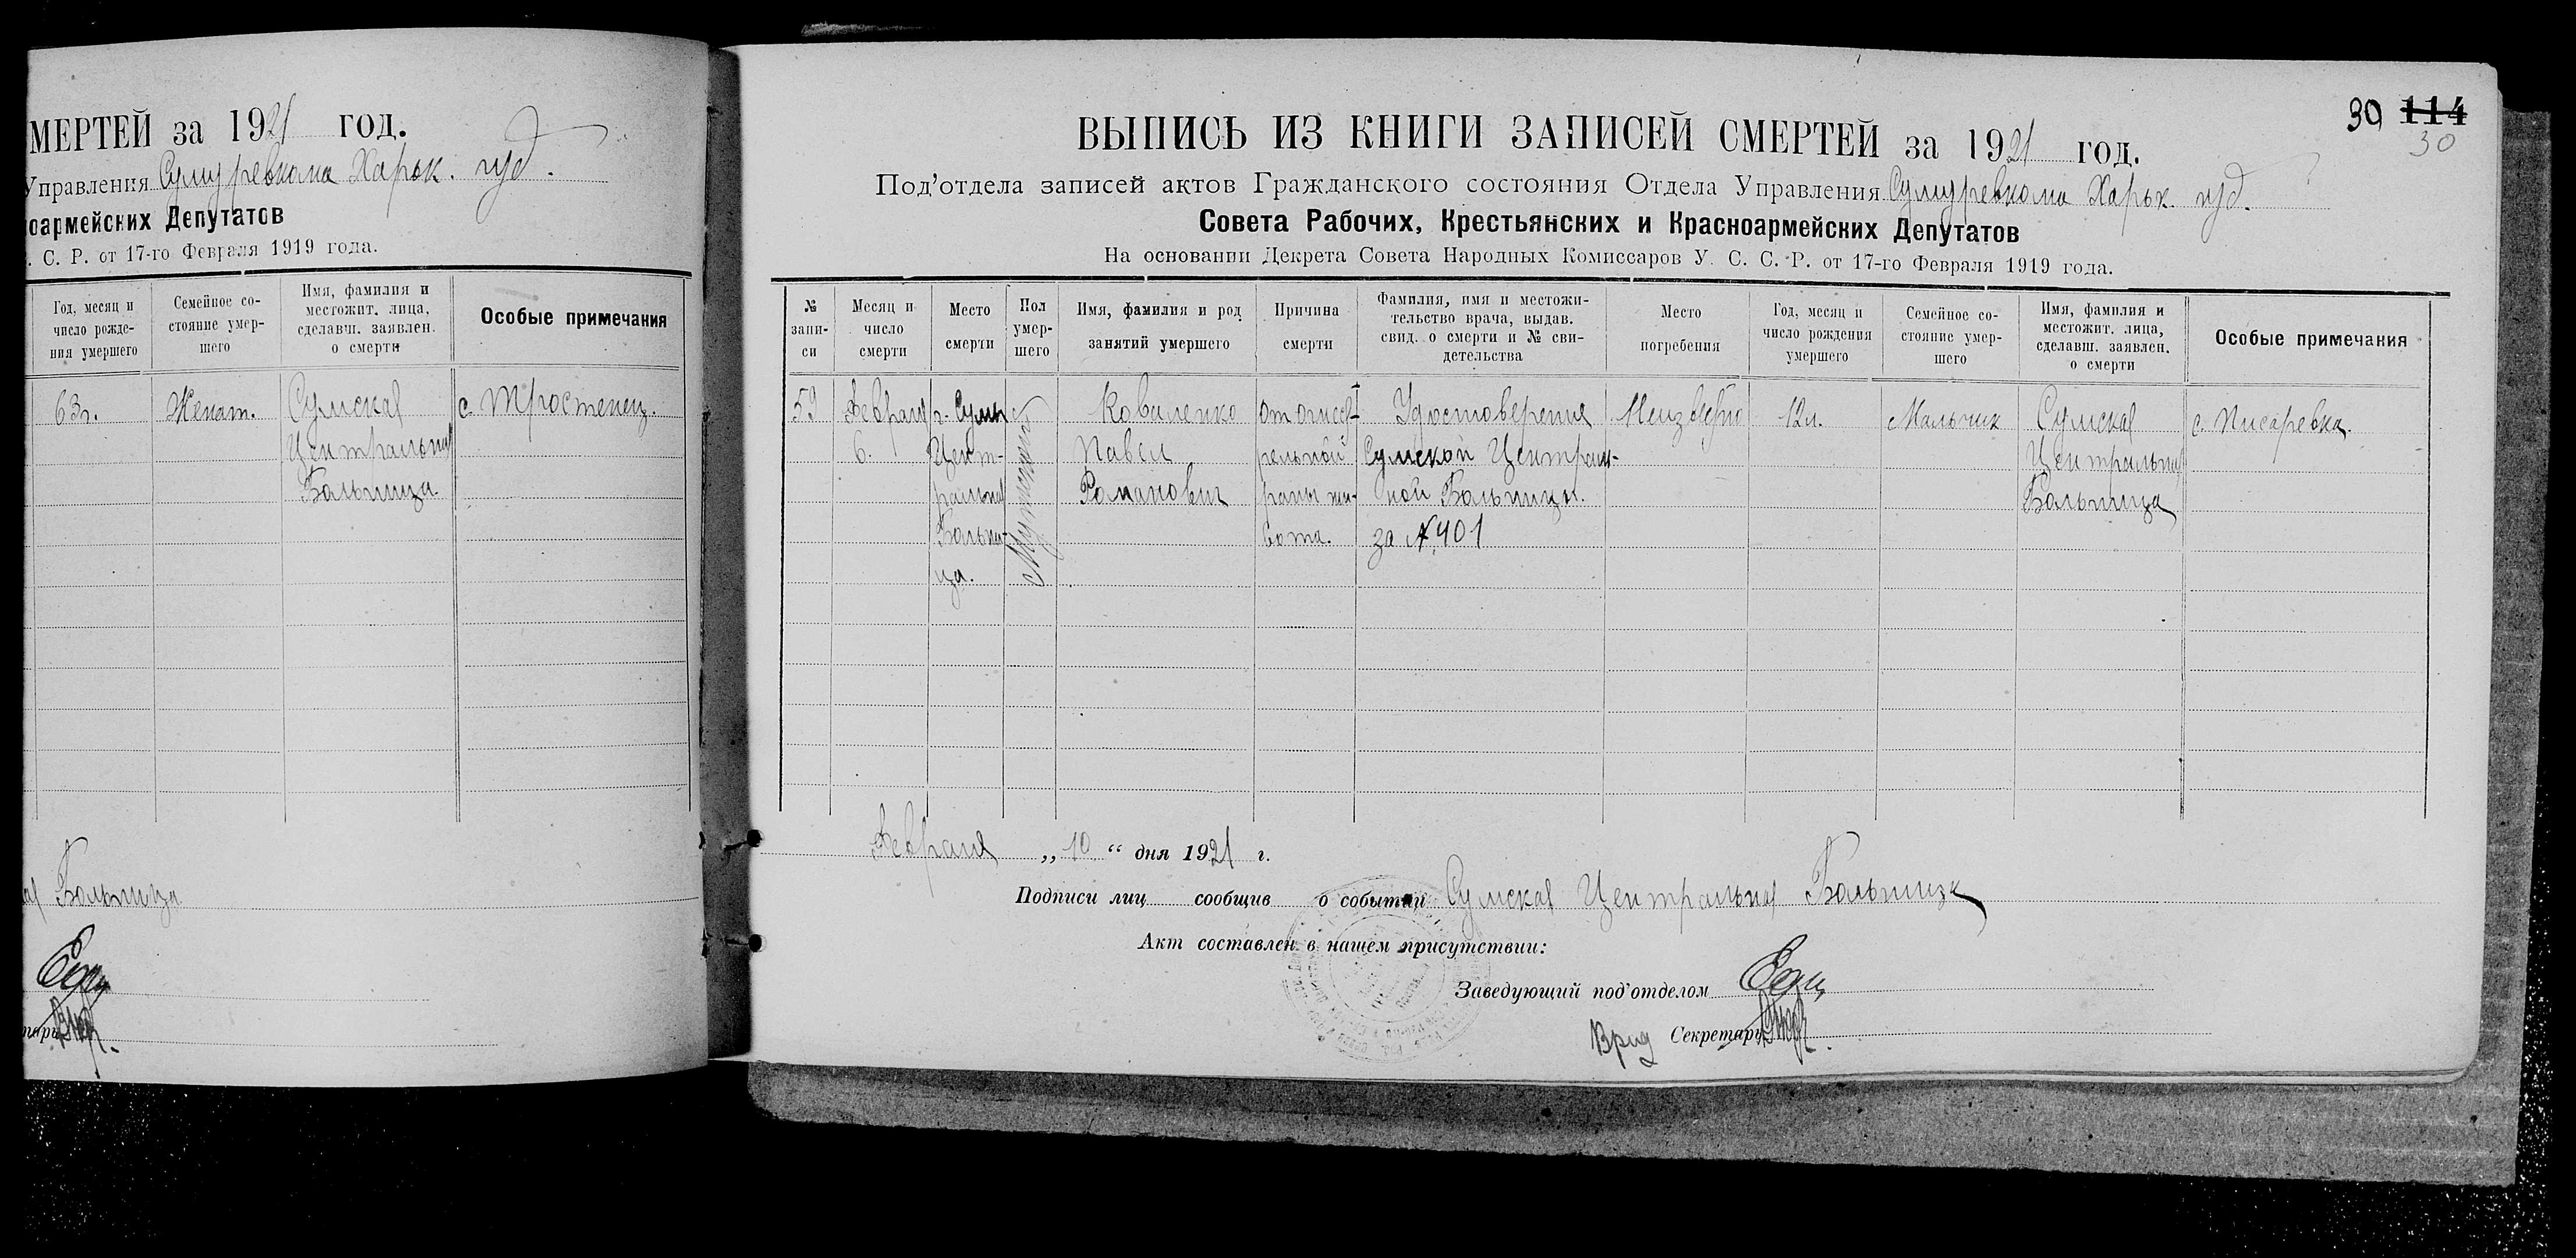 МЕРТЕЙ за 1921 год.
Управления Сумуревкома Харьк. губ.
оармейских Депутатов
. С. Р. от 17-го Февраля 1919 года.
Год, месяц и число рожде- ния умершего
Семейное со- стояние умер- шего
Имя, фамилия и местожит. лица, сделавш. заявлен. о смерти
Особые примечания
63 г. Женат. Сумская с. Тростенец.
Центральная
Больница
Больница
ВЫПИСЬ ИЗ КНИГИ ЗАПИСЕЙ СМЕРТЕЙ за 1921 год.
39 114
30
Под'отдела записей актов Гражданского состояния Отдела Управления Сумуревкома Харьк. губ.
Совета Рабочих, Крестьянских и Красноармейских Депутатов
На основании Декрета Совета Народных Комиссаров У. С. С. Р. от 17-го Февраля 1919 года.
№ запи- си
Месяц и число смерти
Место смерти
Пол умер- шего
Имя, фамилия и род занятий умершего
Причина смерти
Фамилия, имя и местожи- тельство врача, выдав. свид. о смерти и № сви- детельства
Место погребения
Год, месяц и число рождения умершего
Семейное со- стояние умер- шего
Имя, фамилия и местожит. лица, сделавш. заявлен. о смерти
Особые примечания
59 Февраля г. Сумы Мужской Коваленко От огнест- Удостоверения Неизвестно 12 л. Мальчик Сумская с. Писаревка.
6. Цент- Павел рельной Сумской Централь- Центральная
ральная Романович раны жи- ной Больницы. Больница
Больни- вота. за № 401
ца.
Февраля „10“ дня 1921 г.
Подписи лиц сообщив о событии Сумская Центральная Больница
Акт составлен в нашем присутствии:
Заведующий под'отделом
Врид Секретарь